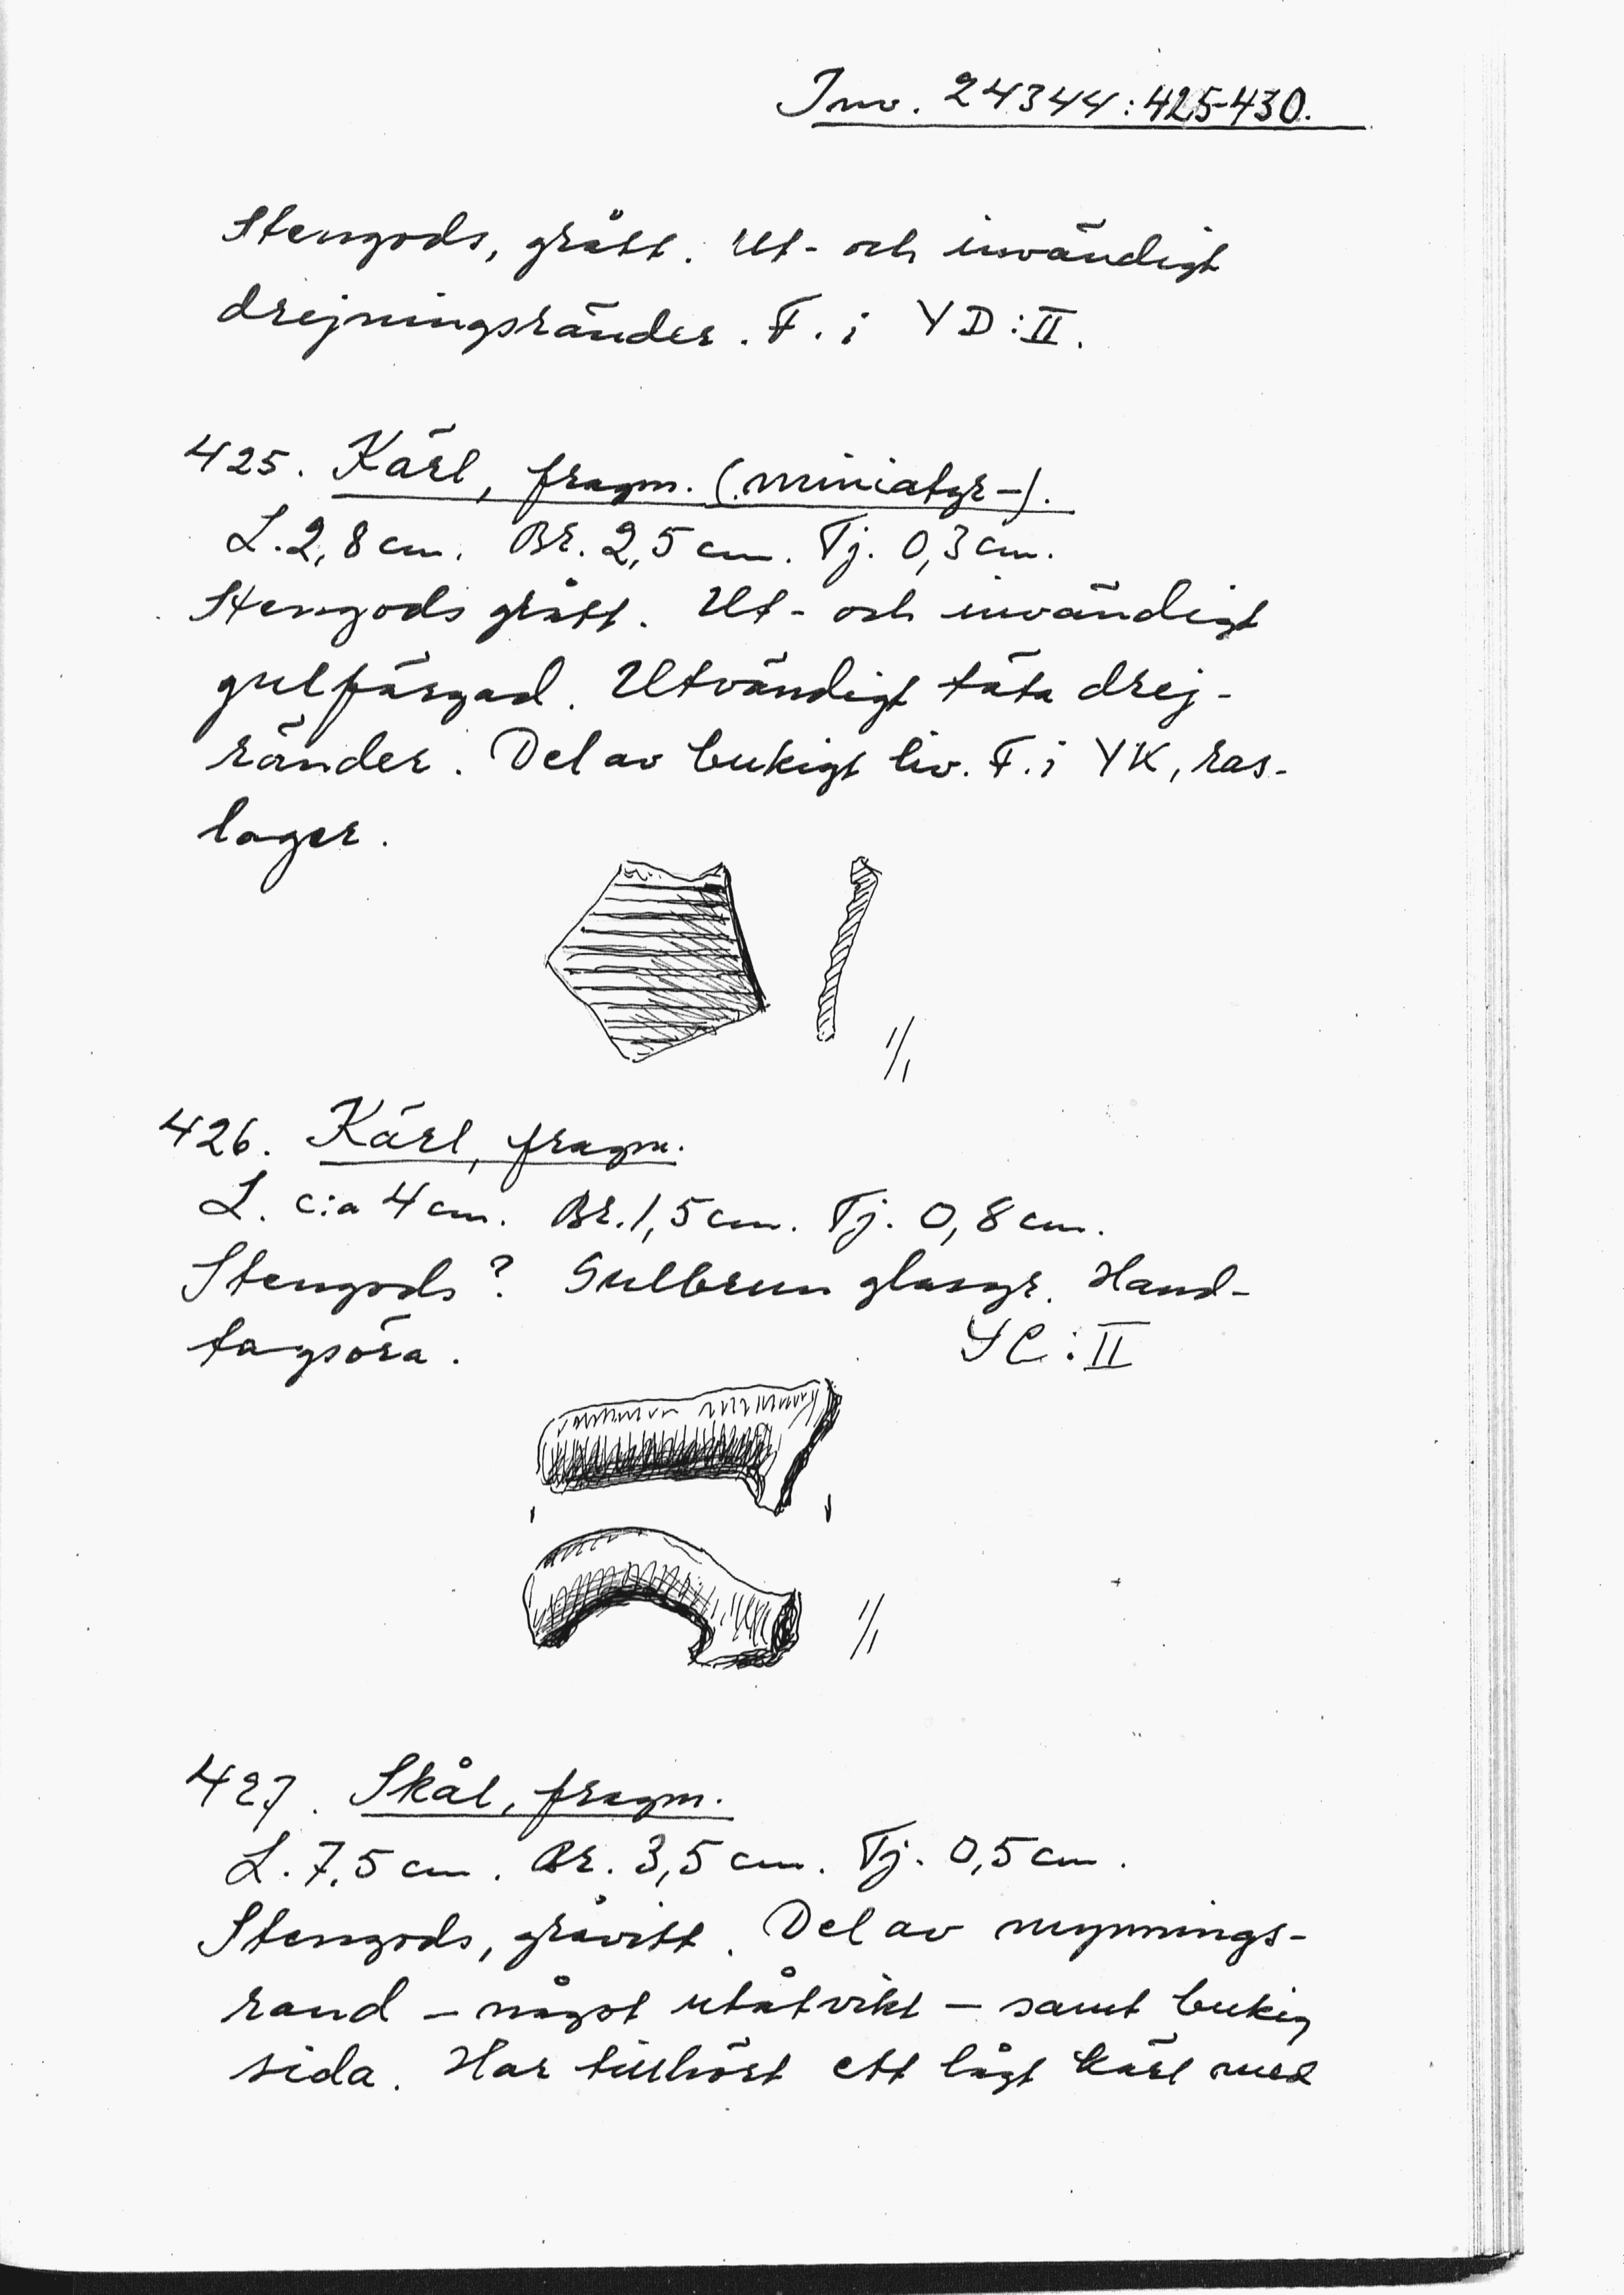 Inv. 24344:425-430.
Stengods, grått. Ut- och invändigt
drejningsränder. F. i YD:II.
425. Kärl, fragm. (miniatyr-).
L. 2,8 cm. Br. 2,5 cm. Tj. 0,3 cm.
Stengods grått. Ut- och invändigt
gulfärgad. Utvändigt täta drej-
ränder. Del av bukigt liv. F. i YK, ras-
lager.
1/1
426. Kärl, fragm.
L. c:a 4 cm. Br. 1,5 cm. Tj. 0,8 cm.
Stengods? Gulbrun glasyr. Hand-
tagsöra. YC:II
1/1
427. Skål, fragm.
L. 7,5 cm. Br. 3,5 cm. Tj. 0,5 cm.
Stengods, gråvitt. Del av mynnings-
rand – något utåtvikt – samt bukig
sida. Har tillhört ett lågt kärl med